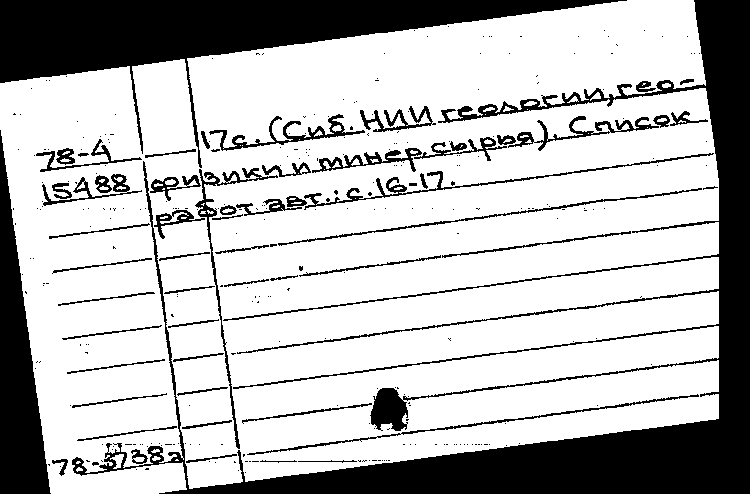 17с. (Сиб. НИИ геологии, гео-
78-4
физики и минер. сырья). Список
15488
работ авт.: с. 16-17.
78-3738а